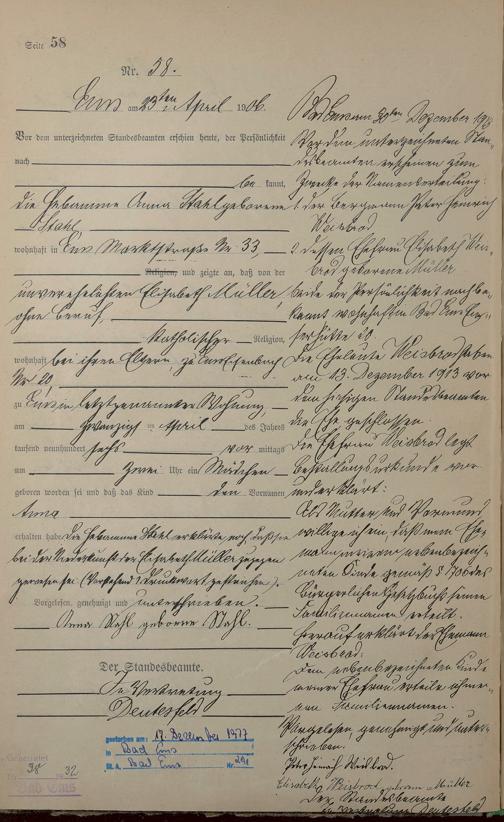 Seite 58
Nr. 58.
Ems am 23ten April 1906.
Vor dem unterzeichneten Standesbeamten erschien heute, der Persönlichkeit
nach
be kannt,
die Hebamme Anna Stahl geborene
Stahl,
wohnhaft in Ems Marktstraße Nr 33,
Religion, und zeigte an, daß von der
unverehelichten Elisabeth Müller,
ohne Beruf,
katholischer Religion,
wohnhaft bei ihren Eltern, zu Ems
Nr 20,
zu Ems in letztgenannter Wohnung
am zwanzigsten April des Jahres
tausend neunhundert sechs vor mittags
um zwei Uhr ein Mädchen
geboren worden sei und daß das Kind den Vornamen
Anna
erhalten habe. Die Hebamme Stahl erklärte noch, daß sie
bei der Niederkunft der Elisabeth Müller zugegen
gewesen sei.
Vorgelesen, genehmigt und unterschrieben.
Anna Stahl geborene Stahl.
Der Standesbeamte.
In Vertretung
Deutesfeld
gestorben am: 17. Dezember 1977
in Bad Ems
St. A. Bad Ems Nr. 291
38 32
Bad Ems
Dezember
Vor dem unterzeichneten Stan-
desbeamten erschienen zum
Zwecke der Namenserteilung:
1. der Bergmann Peter Heinrich
Weisbrod
2. dessen Ehefrau Elisabeth Weis-
brod geborene Müller
beide der Persönlichkeit nach be-
kannt, wohnhaft in Bad Ems
Die Eheleute Weisbrod haben
am 13. Dezember 1913 vor
dem hiesigen Standesbeamten
die Ehe geschlossen.
Die Ehefrau Weisbrod legt
Bestallungsurkunde vor
und erklärt:
Als Mutter und Vormund
willige ich ein, daß mein Ehe-
mann meinem nebenbezeich-
neten Kinde gemäß § 1706 des
Bürgerlichen Gesetzbuchs seinen
Familiennamen erteilt.
Hierauf erklärt der Ehemann
Weisbrod:
Dem nebenbezeichneten Kinde
meiner Ehefrau erteile ich mei-
nen Familiennamen.
Vorgelesen, genehmigt und unter-
schrieben.
Peter Heinrich Weisbrod.
Elisabeth Weisbrod, geborene Müller
Der Standesbeamte
in Vertretung Deutesfeld